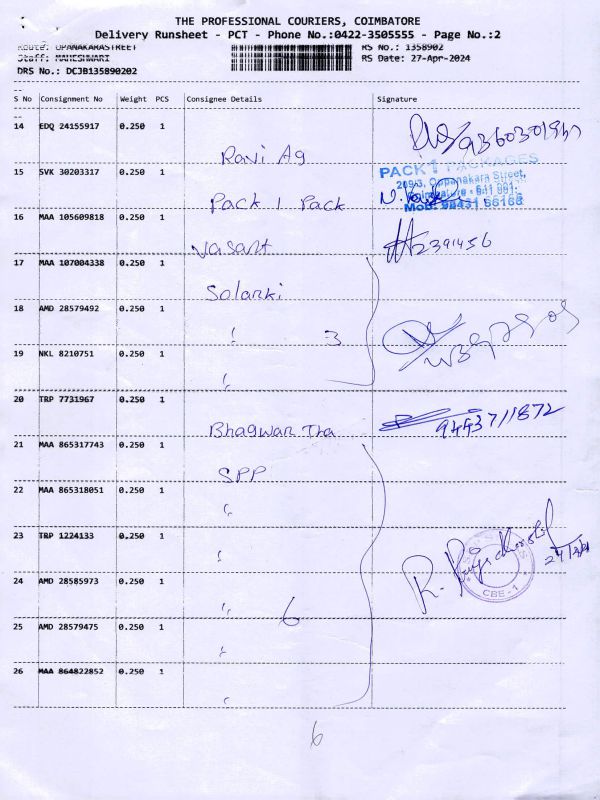 THE PROFESSIONAL COURIERS, COIMBATORE
Delivery Runsheet - PCT - Phone No.:0422-3505555 - Page No.:2
Route: OPANAKARASTREET RS No.: 1358902
Staff: MAHESHWARI RS Date: 27-Apr-2024
DRS No.: DCJB135890202
S No Consignment No Weight PCS Consignee Details Signature
14 EDQ 24155917 0.250 1
Ravi Ag
15 SVK 30203317 0.250 1
PACK 1 PACKAGES
209/3, Oppanakara Street,
Coimbatore - 641 001.
Mob: 98431 56168
Pack 1 Pack
16 MAA 105609818 0.250 1
Vasant
17 MAA 107004338 0.250 1
Solanki
18 AMD 28579492 0.250 1
" 3
19 NKL 8210751 0.250 1
"
20 TRP 7731967 0.250 1
Bhagwan Tha 9443711872
21 MAA 865317743 0.250 1
SPP
22 MAA 865318051 0.250 1
"
23 TRP 1224133 0.250 1
"
24 AMD 28585973 0.250 1
CBE - 1
" 6
25 AMD 28579475 0.250 1
"
26 MAA 864822852 0.250 1
"
6